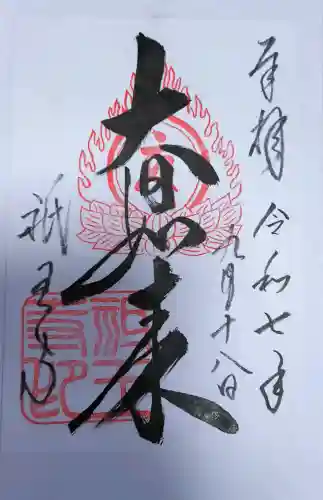 奉拝 令和七年
九月十八日
大日如来
祇王寺
祇王寺印